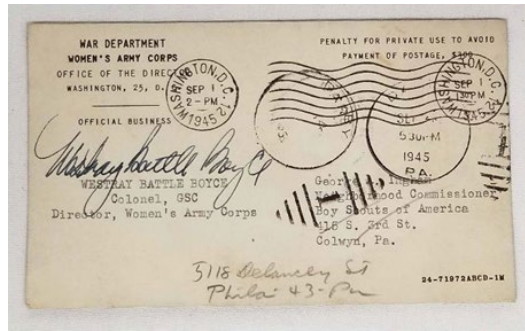 WAR DEPARTMENT
WOMEN'S ARMY CORPS
OFFICE OF THE DIRECTOR
WASHINGTON, 25, D.
OFFICIAL BUSINESS
PENALTY FOR PRIVATE USE TO AVOID
PAYMENT OF POSTAGE, $300
WASHINGTON, D.C.
SEP 1
2-PM
1945
WASHINGTON, D.C.
SEP 1
130PM
1945
SEP
530PM
1945
PA.
Westray Battle Boyce
WESTRAY BATTLE BOYCE
Colonel, GSC
Director, Women's Army Corps
George Ingham
Neighborhood Commissioner
Boy Scouts of America
418 S. 3rd St.
Colwyn, Pa.
5118 Delancey St
Phila 43- Pa
24-71972ABCD-1M